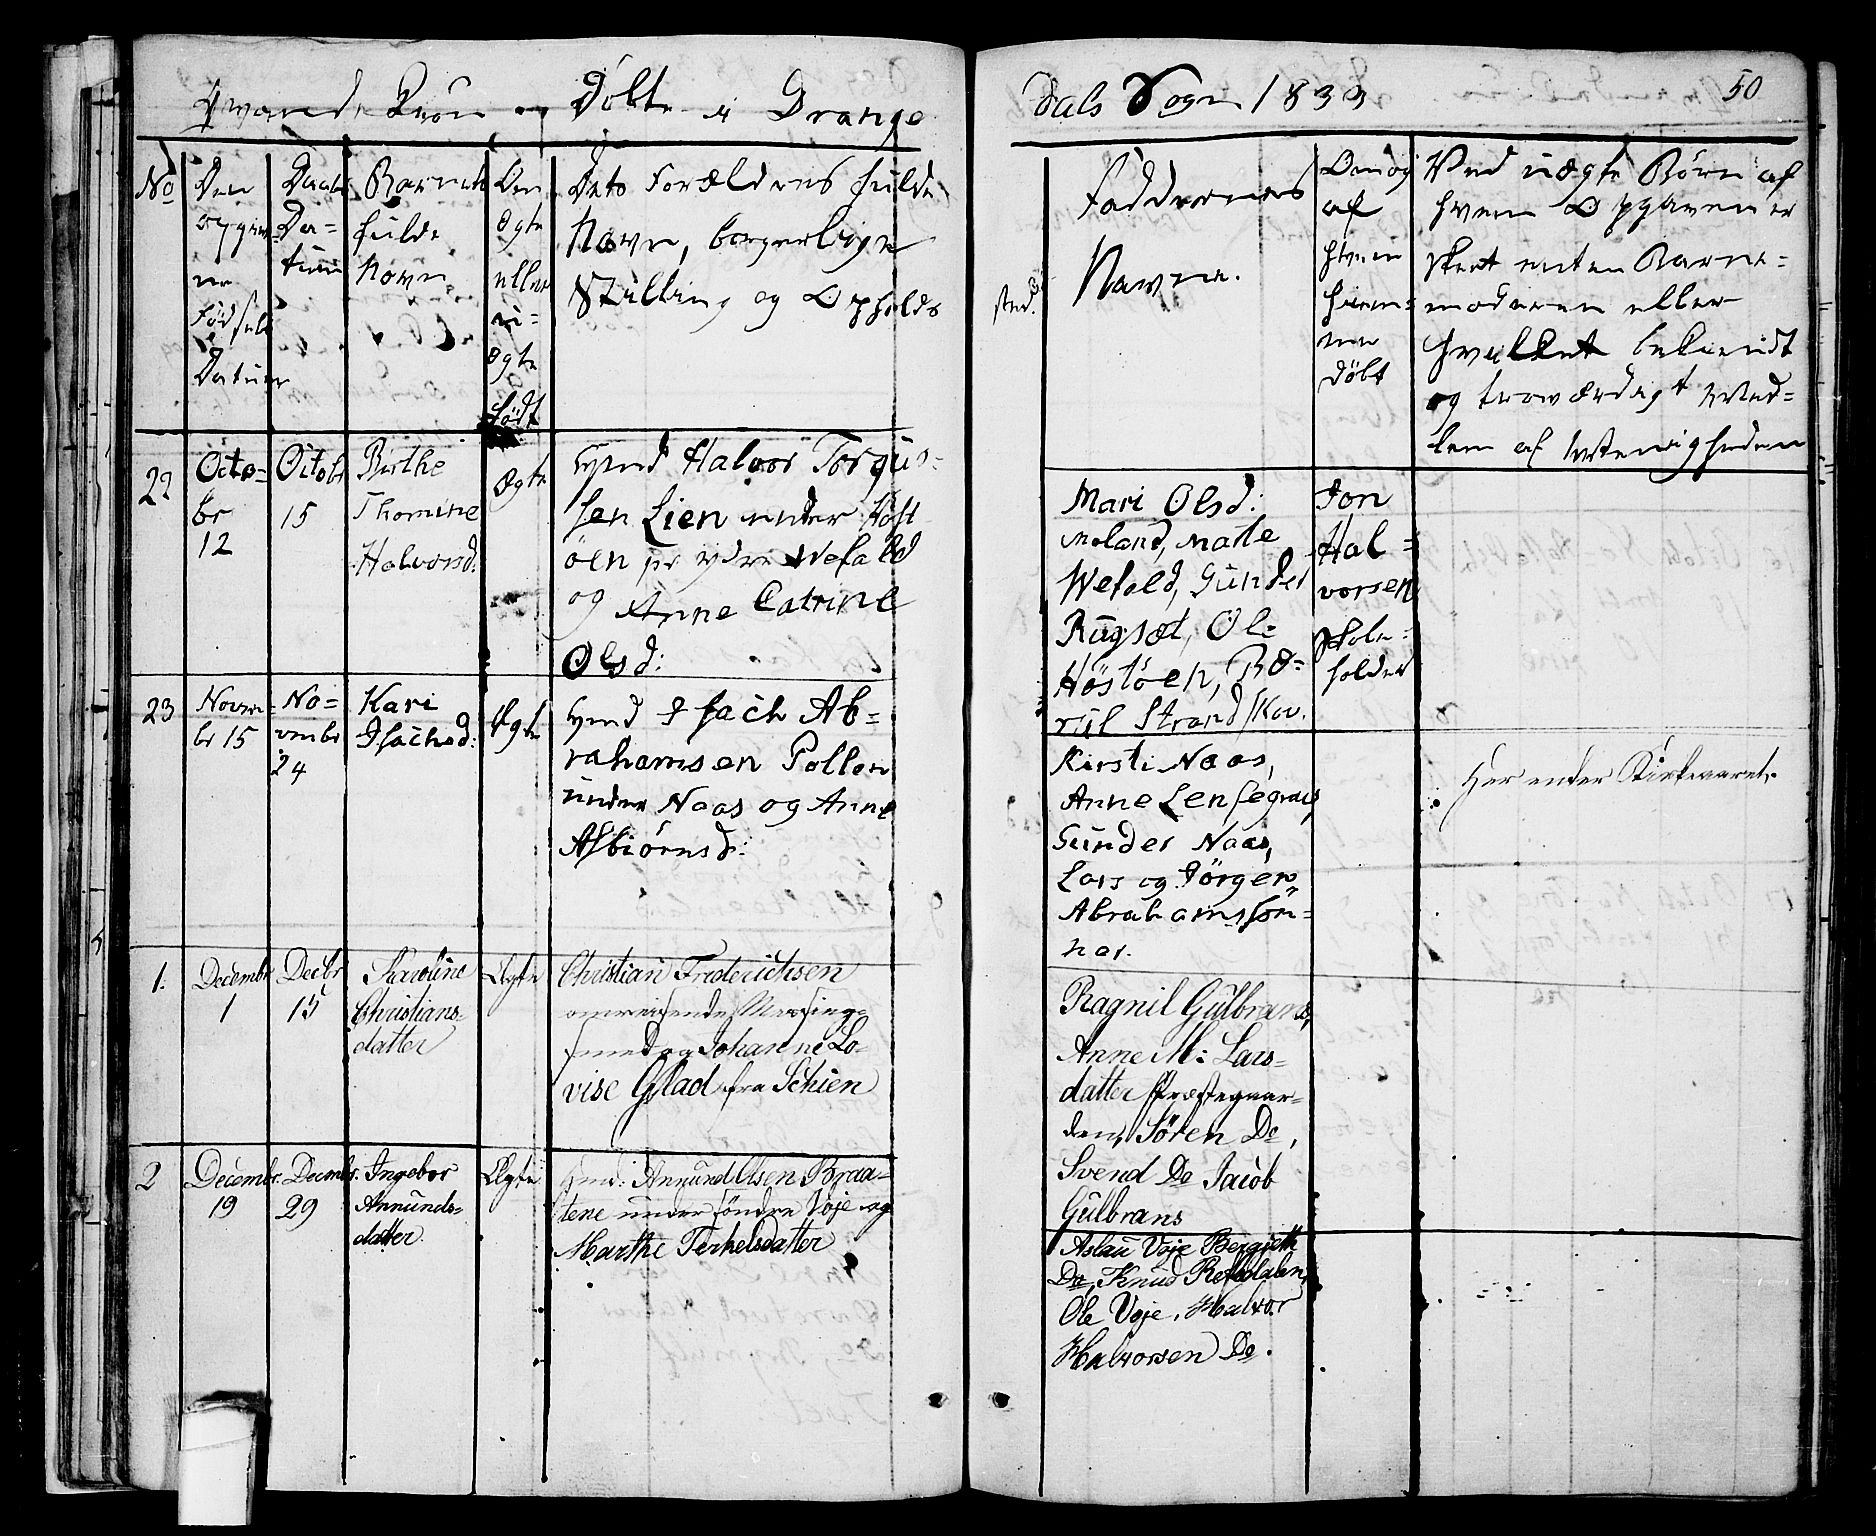 Qvande Kiøn og Døbte i Drange
dals Sogn 1833
50
No
Den
opgiv=
ne
Fødsels
Datum
Daabs
Da=
tum
Barnets
fulde
Navn
Om
ægte
eller
u=
ægte
født
Dets Forældres fulde
Navn, borgerlige
Stilling og Opholds
sted.
Faddernes
Navne.
Om og
af
hvem
hiem=
me
døbt
Ved uægte Børn af
hvem Opgaven er
skeet enten Barne=
moderen eller
hvilket bekiendt
og troværdigt Med=
lem af Menigheden
22
Octo=
br
12
Octobr
15
Birthe
Thomine
Halvorsd:
Ægte
Hmd Halvor Torgus=
sen Lien under Høst
øen pr ydre Wefald
og Anne Catrine
Olsd:
Mari Olsd:
Moland, Marte
Wefald, Gunder
Rugsæt, Ole
Høstøen, Bæ=
rul Strand/Kov.
Jon
Hal=
vorsen
Skole=
holder
23
Novem=
br 15
No=
vembr
24
Kari
Isachsd:
Ægte
Hmd Isach Ab=
rahamsen Pollen
under Naas og Anne
Asbiørnsd:
Kirsti Naas,
Anne Lensegrav,
Gunder Naas,
Lars og Jörgen
Abrahamssøn=
ner.
Her ender Kirkeaaret.
1.
Decembr
1
Decbr
15
Karoline
Christians=
datter
Ægte
Christian Friderichsen
omreisende Messing=
smed og Johanne Lo=
vise Glad fra Schien
Ragnil Gulbrans,
Anne M: Lars=
datter Præstegaar=
den, Sören Do,
Svend Do Jacob
Gulbrans
2
Decembr.
19
Decembr.
29
Ingebor
Annunds=
datter
Ægte
Hmd: Annund Olsen Braa=
tene under söndre Voje og
Marthe Terkelsdatter
Aslau Voje Bergitte
Do, Knud Refsdalen,
Ole Voje, Halvor
Halvorsen Do.